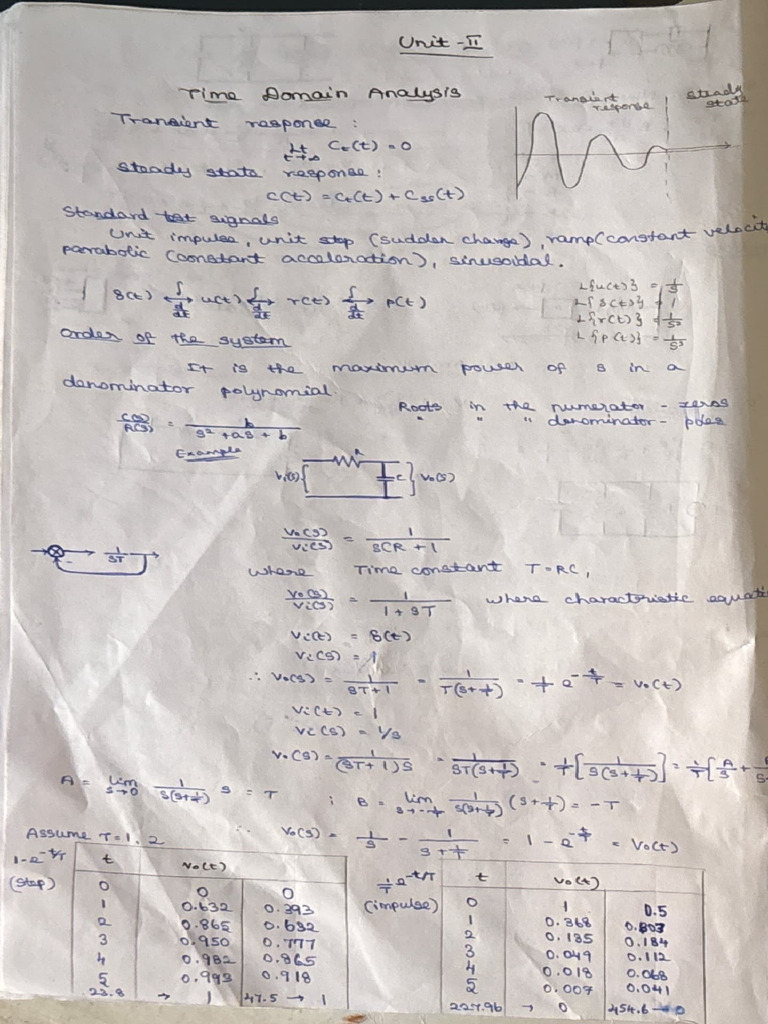 Unit - II
Time Domain Analysis
Transient response
Steady state
Transient response :
Lt t→∞ Ct(t) = 0
Steady state response :
c(t) = Ct(t) + Css(t)
Standard test signals
Unit impulse, unit step (sudden change), ramp (constant velocit
parrabolic (constant acceleration), sinusoidal.
δ(t) ∫ ⇄ d/dt u(t) ∫ ⇄ d/dt r(t) ∫ ⇄ d/dt p(t)
L{u(t)} = 1/s
L{δ(t)} = 1
L{r(t)} = 1/s²
L{p(t)} = 1/s³
Order of the system
It is the maximum power of s in a
denominator polynomial.
Roots in the numerator - zeros
" " " denominator - poles
C(s)/R(s) = b / s² + as + b
Example
Vi(s) R C Vo(s)
Vo(s)/Vi(s) = 1 / sCR + 1
- 1/ST
where Time constant T = RC,
Vo(s)/Vi(s) = 1 / 1 + ST where characteristic equati
Vi(t) = δ(t)
Vi(s) = 1
∴ Vo(s) = 1/ST+1 = 1/T(s+1/T) = 1/T e^-t/T = Vo(t)
Vi(t) = 1
Vi(s) = 1/s
Vo(s) = 1/(ST+1)S = 1/ST(s+1/T) = 1/T [1/S(s+1/T)] = 1/T [A/S +
A = lim s→0 1/s(s+1/T) s = T ; B = lim s→-1/T 1/s(s+1/T) (s+1/T) = -T
∴ Vo(s) = 1/s - 1/s+1/T = 1 - e^-t/T = Vo(t)
Assume T = 1, 2
1-e^-t/T
(step)
t Vo(t)
0 0 0
1 0.632 0.393
2 0.865 0.632
3 0.950 0.777
4 0.982 0.865
5 0.993 0.918
23.8 → 1 47.5 → 1
1/T e^-t/T
(impulse)
t Vo(t)
0 1 0.5
1 0.368 0.303
2 0.135 0.184
3 0.049 0.112
4 0.018 0.068
5 0.007 0.041
227.96 → 0 454.6 → 0